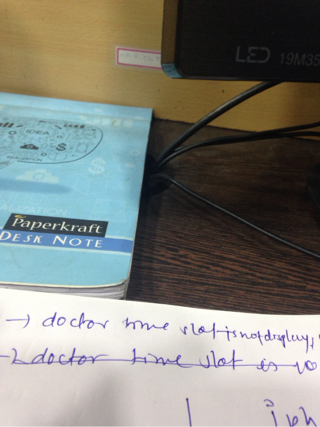 LED 19M35
IDEA
Paperkraft
DESK NOTE
→ doctor time slot is not display
→ doctor time slot is
iph